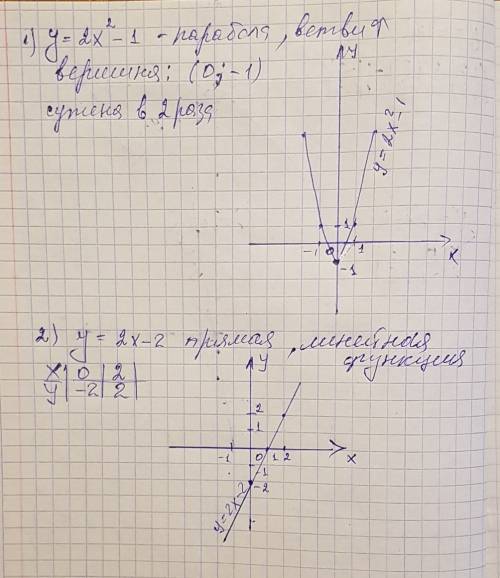 1) y = 2x² - 1 - парабола, ветви ↑
вершина: (0; -1)
сужена в 2 раза
y
y = 2x² - 1
1
-1 0 1 x
-1
2) y = 2x - 2 прямая, линейная
функция
x | 0 | 2 |
y | -2 | 2 |
y
2
1
-1 0 1 2 x
-1
-2
y = 2x - 2